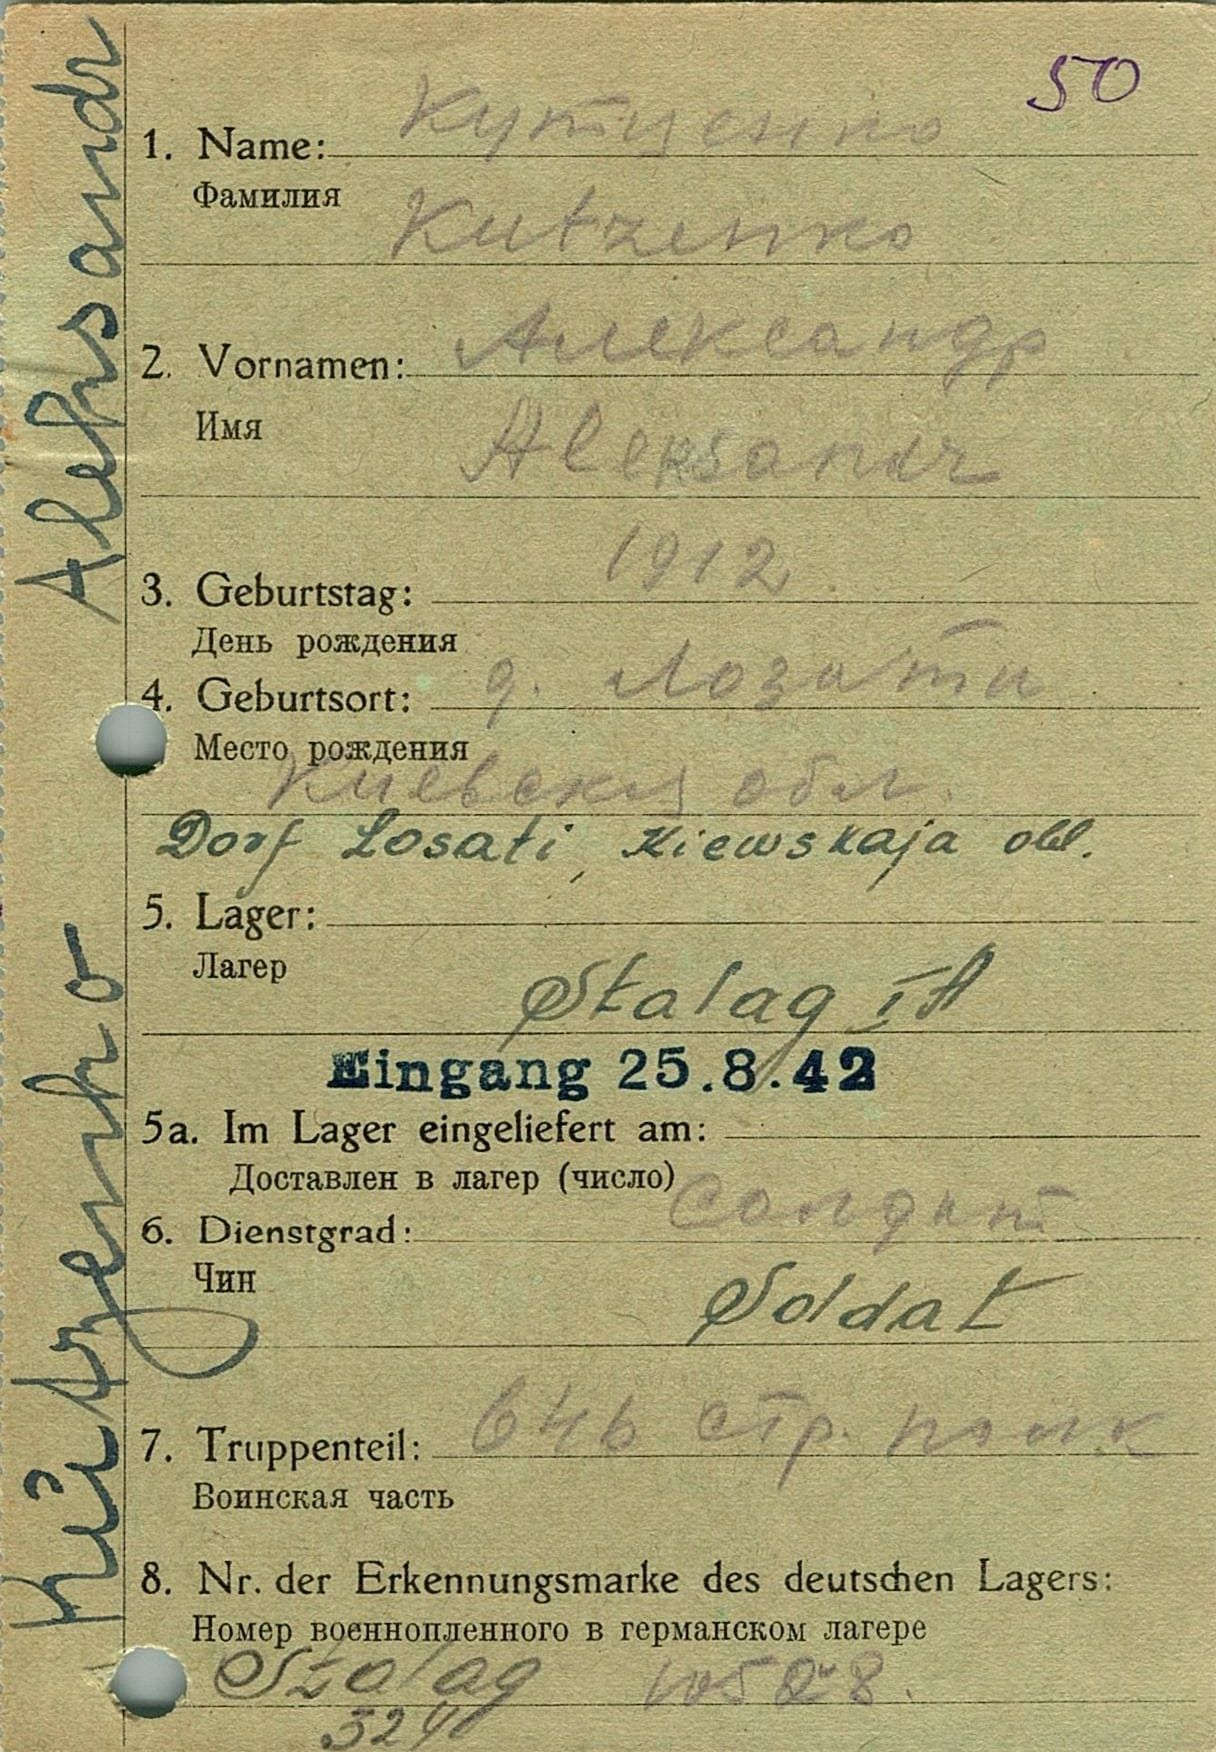 50
1. Name: Кутценко
Фамилия
Kutzenko
2. Vornamen: Александр
Имя
Aleksandr
3. Geburtstag: 1912
День рождения
4. Geburtsort: д. Лозати
Место рождения
Киевская обл.
Dorf Losati, Kiewskaja obl.
5. Lager:
Лагер
Stalag IA
Eingang 25.8.42
5a. Im Lager eingeliefert am:
Доставлен в лагер (число)
6. Dienstgrad: Солдат
Чин
Soldat
7. Truppenteil: 646 стр. полк
Воинская часть
8. Nr. der Erkennungsmarke des deutschen Lagers:
Номер военнопленного в германском лагере
Stalag
Kutzenko Aleksandr